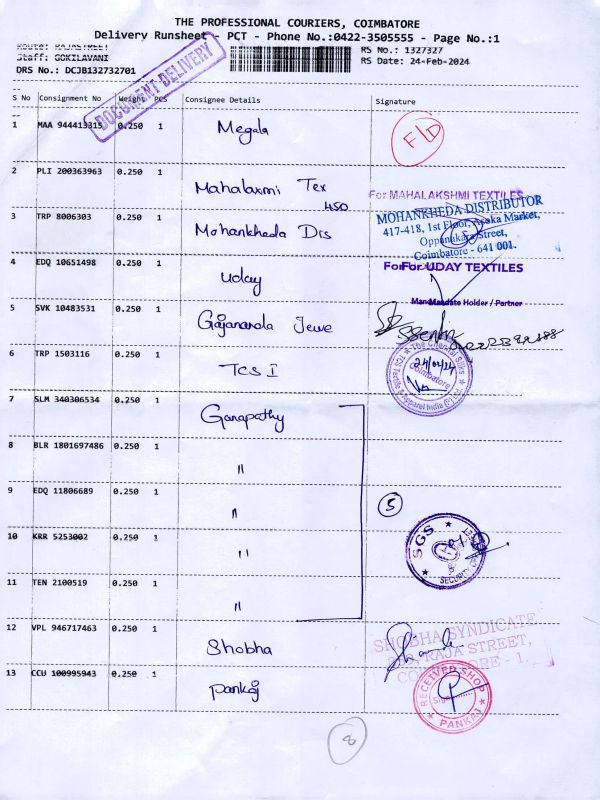 THE PROFESSIONAL COURIERS, COIMBATORE
Delivery Runsheet - PCT - Phone No.:0422-3505555 - Page No.:1
Route: RAJASTREET
Staff: GOKILAVANI
DRS No.: DCJB132732701
RS No.: 1327327
RS Date: 24-Feb-2024
DOCUMENT DELIVERY
S No Consignment No Weight PCS Consignee Details Signature
1 MAA 944413315 0.250 1 Megala F/D
2 PLI 200363963 0.250 1 Mahalaxmi Tex
For MAHALAKSHMI TEXTILES
450
3 TRP 8006303 0.250 1 Mohankheda Drs
MOHANKHEDA DISTRIBUTOR
417-418, 1st Floor, Asoka Market,
Oppanakara Street,
Coimbatore - 641 001.
4 EDQ 10651498 0.250 1 Uday
For For UDAY TEXTILES
Mandate Holder / Partner
5 SVK 10483531 0.250 1 Gajananda Jewe
6 TRP 1503116 0.250 1 TCS I
The Chennai Silks
24/02/24
Coimbatore
7 SLM 340306534 0.250 1 Ganapathy
8 BLR 1801697486 0.250 1 "
9 EDQ 11806689 0.250 1 "
5
10 KRR 5253002 0.250 1 "
SGS
SECURITY
11 TEN 2100519 0.250 1 "
12 VPL 946717463 0.250 1 Shobha
SHOBHA SYNDICATE
RAJA STREET,
COIMBATORE - 1.
13 CCU 100995943 0.250 1 Pankaj
RECEIVED SHOP
PANKAJ
8